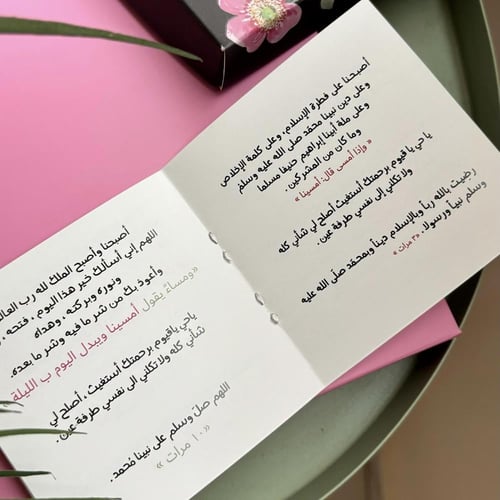 أصبحنا على فطرة الإسلام، وعلى كلمة الإخلاص
وعلى دين نبينا محمد صلى الله عليه وسلم
وعلى ملة أبينا إبراهيم حنيفا مسلما
وما كان من المشركين.
« وإذا أمسى قال: أمسينا »
يا حي يا قيوم برحمتك أستغيث أصلح لي شأني كله
ولا تكلني إلى نفسي طرفة عين.
رضيت بالله رباً وبالإسلام ديناً وبمحمد صلى الله عليه
وسلم نبياً ورسولا. «٣ مرات »
أصبحنا وأصبح الملك لله رب العا
اللهم إني أسألك خير هذا اليوم ، فتحه ،
ونوره وبركته ، وهداه
وأعوذ بك من شر ما فيه وشر ما بعده.
«ومساءً يقول أمسينا ويبدل اليوم ب الليلة
ياحي ياقيوم برحمتك أستغيث ، أصلح لي
شأني كله ولا تكلني الى نفسي طرفة عين .
اللهم صل وسلم على نبينا مُحمد.
« ١٠ مرات »